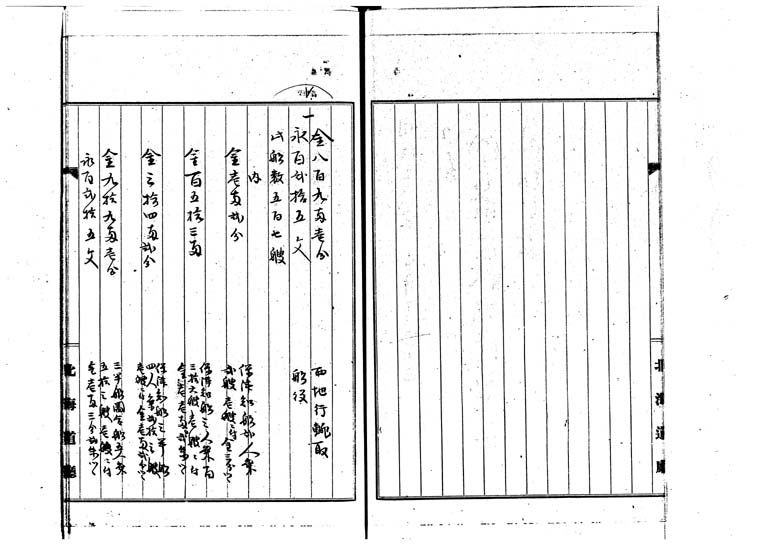 一金八百九両壱分
永百弐拾五文
西地行鯡取
船役
此船数五百七艘
内
金壱両弐分
保津知船弐人乗
弐艘壱艘ニ付金三分ツヽ
金百五拾三両
保津知船三人乗百
三拾六艘壱艘ニ付
金壱両弐朱ツヽ
金三拾四両弐分
保津知船三半船
四人乗弐拾三艘
壱艘ニ付金壱両弐分ツヽ
金九拾九両壱分
永百弐拾五文
三半船図合船五人乗
五拾三艘壱艘ニ付
金壱両三分弐朱ツヽ
北海道廳
北海道廳